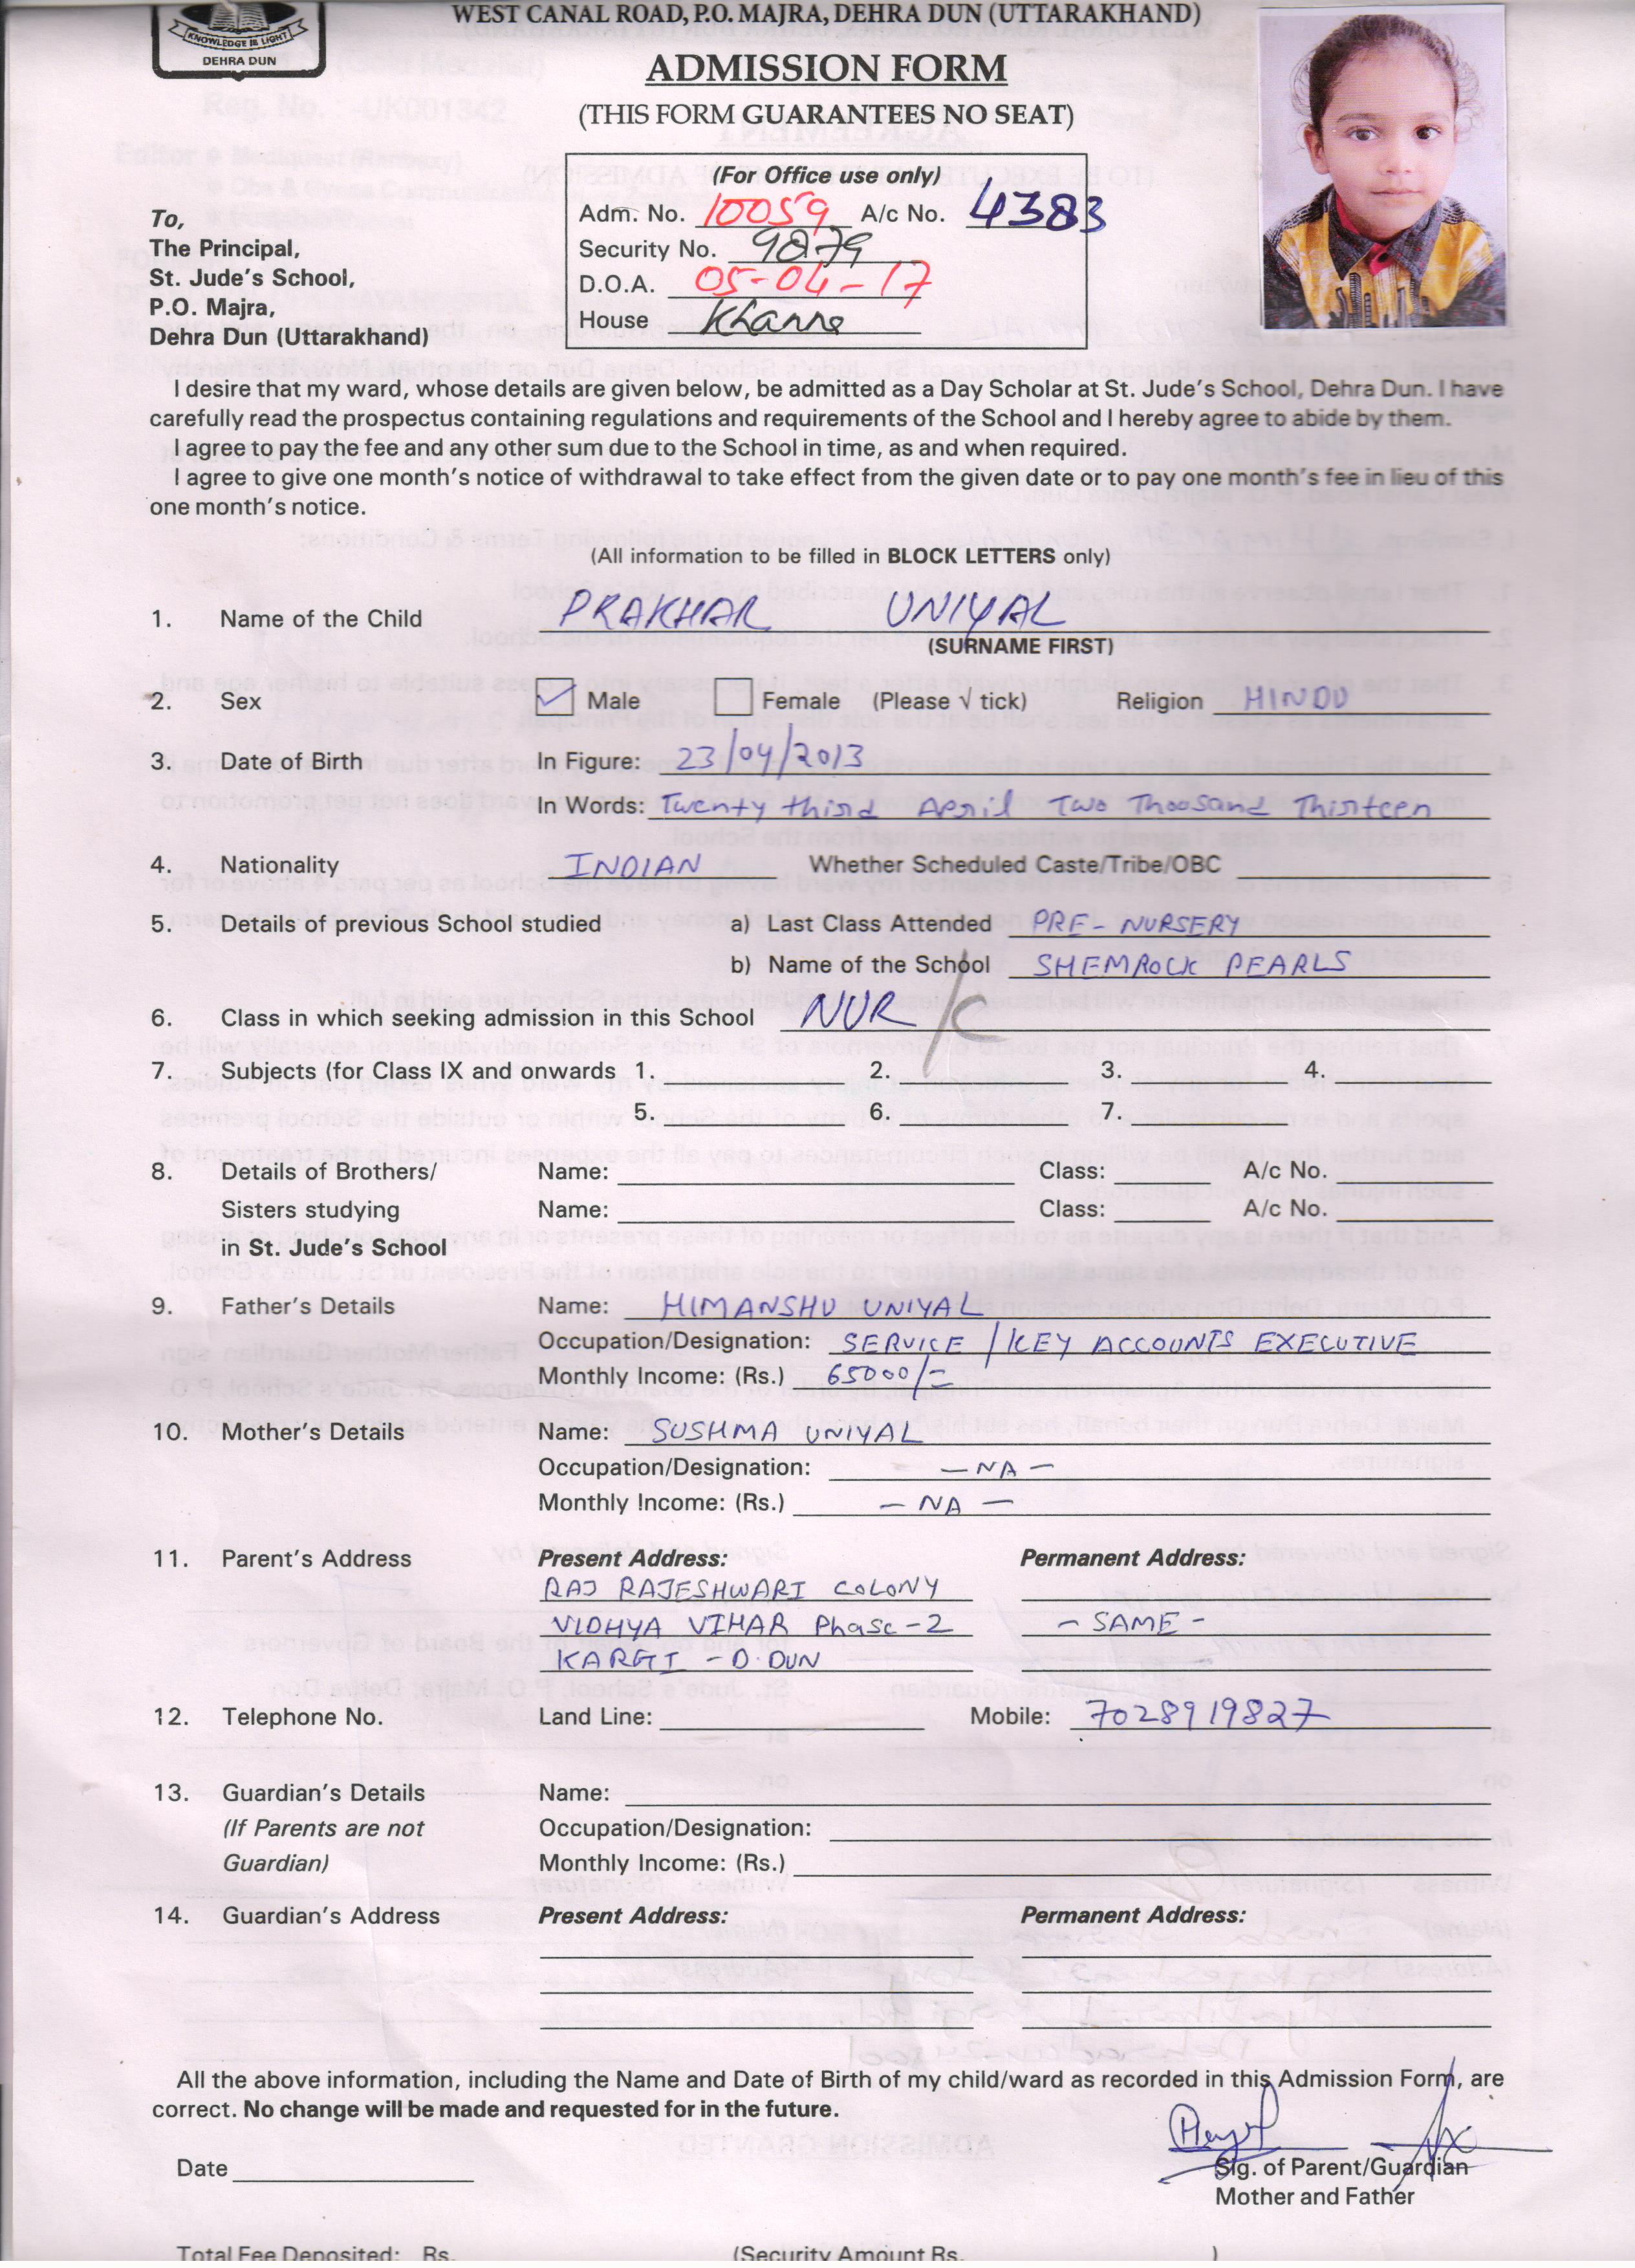 WEST CANAL ROAD, P.O. MAJRA, DEHRA DUN (UTTARAKHAND)
KNOWLEDGE IS LIGHT
DEHRA DUN
ADMISSION FORM
(THIS FORM GUARANTEES NO SEAT)
(For Office use only)
Adm. No. 10059 A/c No. 4383
Security No. 9879
D.O.A. 05-04-17
House Khanna
To,
The Principal,
St. Jude's School,
P.O. Majra,
Dehra Dun (Uttarakhand)
I desire that my ward, whose details are given below, be admitted as a Day Scholar at St. Jude's School, Dehra Dun. I have
carefully read the prospectus containing regulations and requirements of the School and I hereby agree to abide by them.
I agree to pay the fee and any other sum due to the School in time, as and when required.
I agree to give one month's notice of withdrawal to take effect from the given date or to pay one month's fee in lieu of this
one month's notice.
(All information to be filled in BLOCK LETTERS only)
1. Name of the Child PRAKHAR UNIYAL
(SURNAME FIRST)
2. Sex Male Female (Please √ tick) Religion HINDU
3. Date of Birth In Figure: 23/04/2013
In Words: Twenty third April Two Thousand Thirteen
4. Nationality INDIAN Whether Scheduled Caste/Tribe/OBC
5. Details of previous School studied a) Last Class Attended PRE-NURSERY
b) Name of the School SHEMROCK PEARLS
6. Class in which seeking admission in this School NUR K
7. Subjects (for Class IX and onwards 1. 2. 3. 4.
5. 6. 7.
8. Details of Brothers/ Name: Class: A/c No.
Sisters studying Name: Class: A/c No.
in St. Jude's School
9. Father's Details Name: HIMANSHU UNIYAL
Occupation/Designation: SERVICE / KEY ACCOUNTS EXECUTIVE
Monthly Income: (Rs.) 65000/=
10. Mother's Details Name: SUSHMA UNIYAL
Occupation/Designation: -NA-
Monthly Income: (Rs.) - NA -
11. Parent's Address Present Address: Permanent Address:
RAJ RAJESHWARI COLONY
VIDHYA VIHAR Phase-2 - SAME -
KARGI - D.DUN
12. Telephone No. Land Line: Mobile: 7028919827
13. Guardian's Details Name:
(If Parents are not Occupation/Designation:
Guardian) Monthly Income: (Rs.)
14. Guardian's Address Present Address: Permanent Address:
All the above information, including the Name and Date of Birth of my child/ward as recorded in this Admission Form, are
correct. No change will be made and requested for in the future.
Date
Sig. of Parent/Guardian
Mother and Father
Total Fee Deposited: Rs. (Security Amount Rs. )